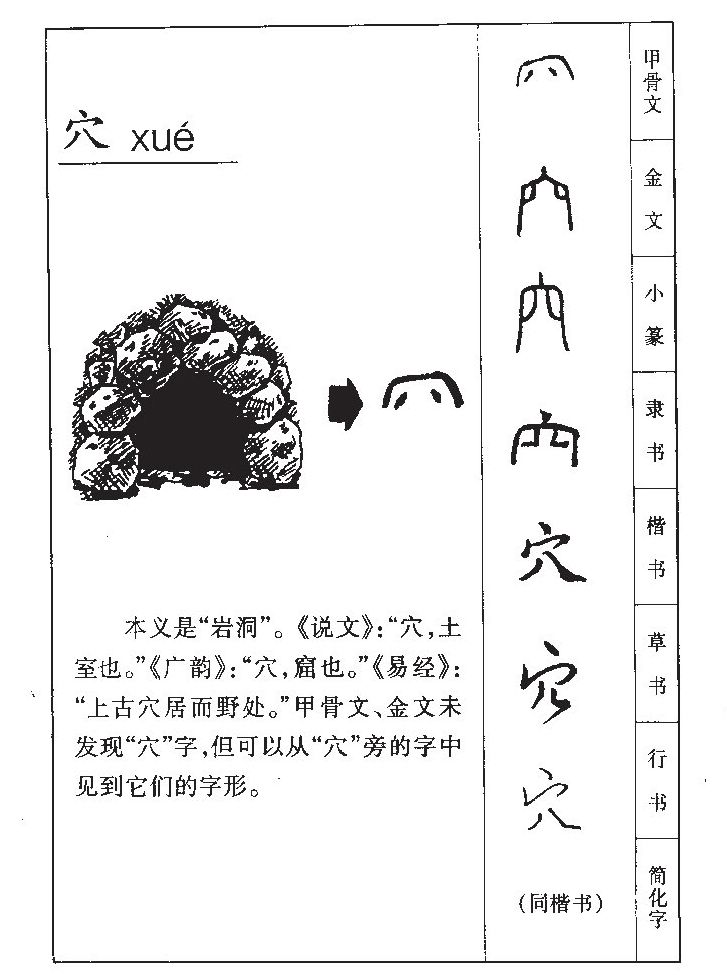 穴 xué
本义是“岩洞”。《说文》:“穴,土
室也。”《广韵》:“穴,窟也。”《易经》:
“上古穴居而野处。”甲骨文、金文未
发现“穴”字,但可以从“穴”旁的字中
见到它们的字形。
穴
穴
穴
穴
穴
穴
穴
穴
(同楷书)
甲骨文
金文
小篆
隶书
楷书
草书
行书
简化字